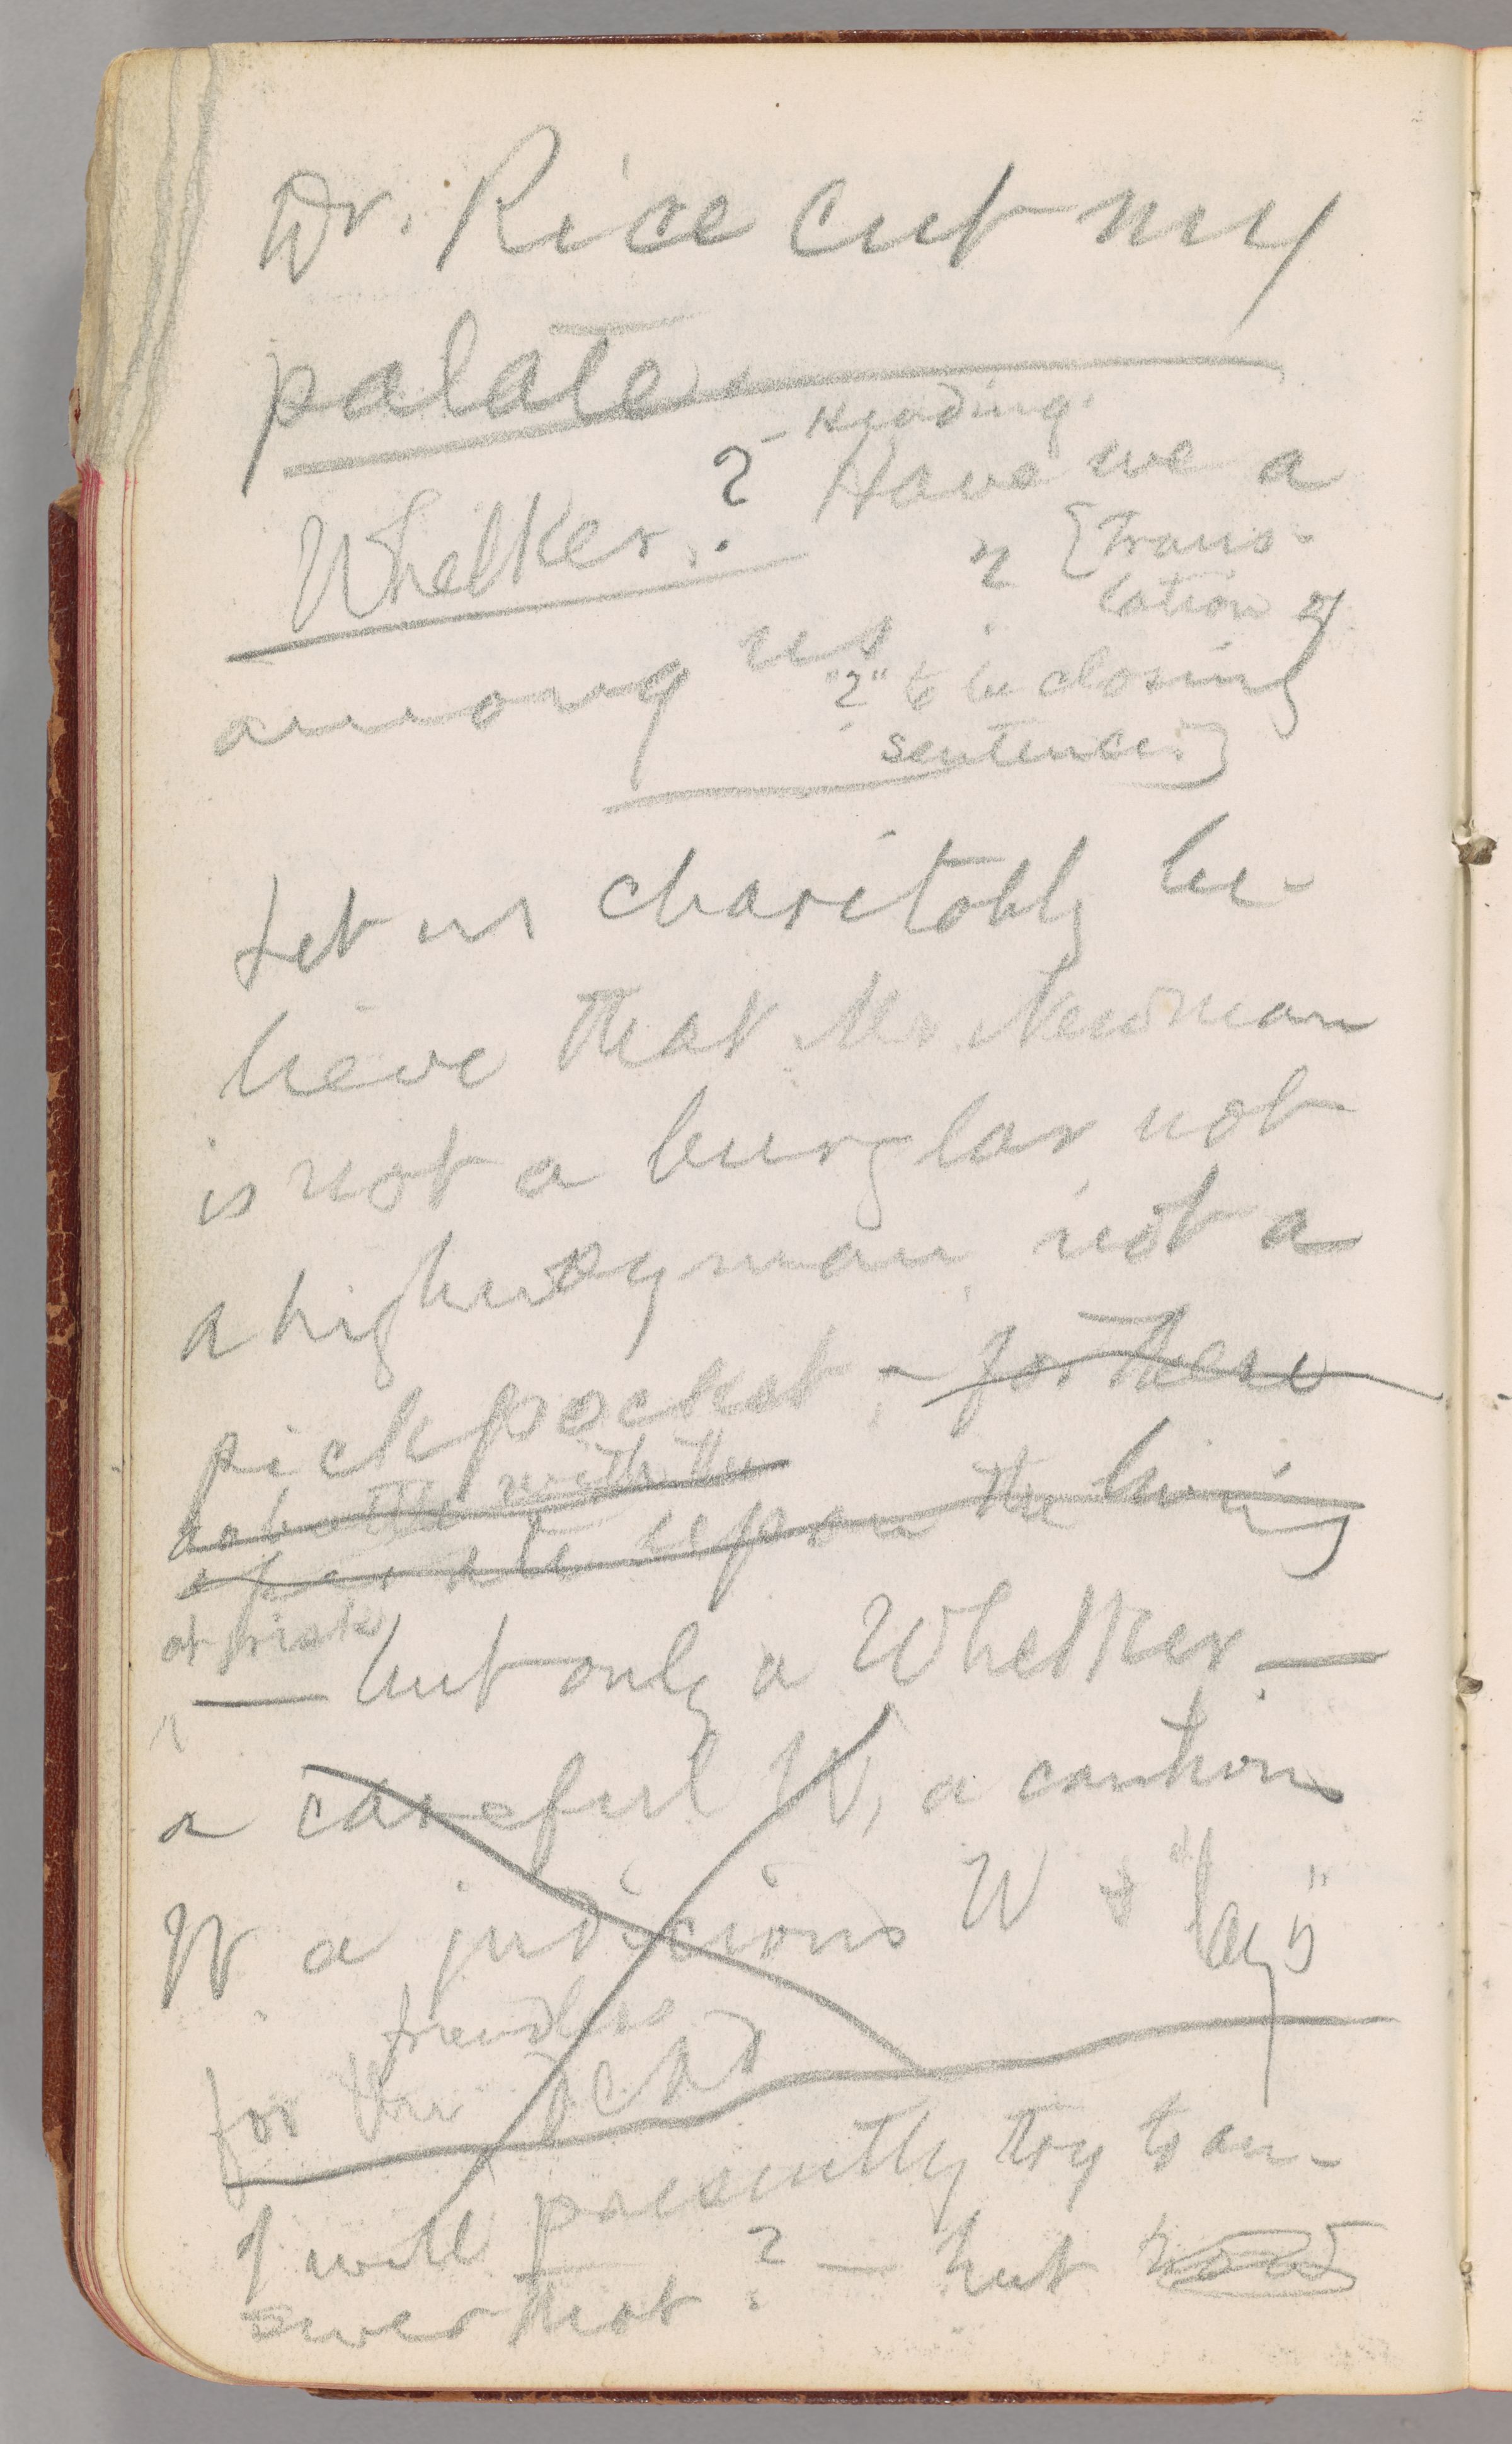 Dr. Rice cut my
palate.
Heading.
Whelker. ? Have we a
? [Trans-
lation of
among us
"?" to be closing
sentence.]
Let us charitably be-
lieve that Mr. Newman
is not a burglar not
a highwayman, not a
pickpocket; – for these
with the
operate upon the living
at risk
— but only a Whelker. —
a careful W, a cautious
W. a judicious W &
friendless
for the
I will presently try to an-
swer that ? — but